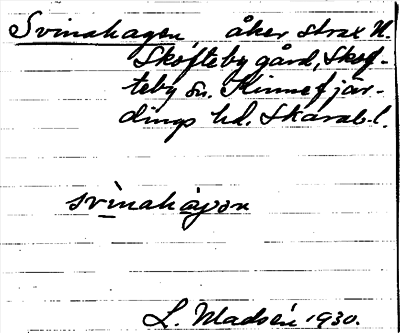 Svinahagen, åker strax N.
Skofteby gård, Skof-
teby sn. Kinnefjär-
dings hd. Skarab.l.
svìnahàgən
L. Madsén 1930.